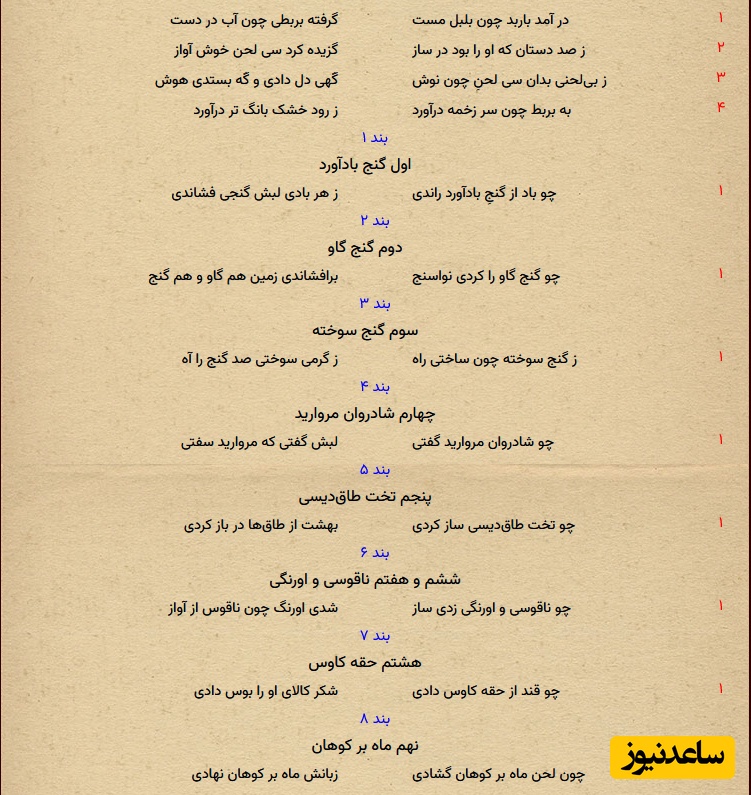 ۱ در آمد باربد چون بلبل مست گرفته بربطی چون آب در دست
۲ ز صد دستان که او را بود در ساز گزیده کرد سی لحن خوش آواز
۳ ز بی‌لحنی بدان سی لحنِ چون نوش گهی دل دادی و گه بستدی هوش
۴ به بربط چون سر زخمه درآورد ز رود خشک بانگ تر درآورد
بند ۱
اول گنج بادآورد
۱ چو باد از گنجِ بادآورد راندی ز هر بادی لبش گنجی فشاندی
بند ۲
دوم گنج گاو
۱ چو گنج گاو را کردی نواسنج برافشاندی زمین هم گاو و هم گنج
بند ۳
سوم گنج سوخته
۱ ز گنج سوخته چون ساختی راه ز گرمی سوختی صد گنج را آه
بند ۴
چهارم شادروان مروارید
۱ چو شادروان مروارید گفتی لبش گفتی که مروارید سفتی
بند ۵
پنجم تخت طاق‌دیسی
۱ چو تخت طاق‌دیسی ساز کردی بهشت از طاق‌ها در باز کردی
بند ۶
ششم و هفتم ناقوسی و اورنگی
۱ چو ناقوسی و اورنگی زدی ساز شدی اورنگ چون ناقوس از آواز
بند ۷
هشتم حقه کاوس
۱ چو قند از حقه کاوس دادی شکر کالای او را بوس دادی
بند ۸
نهم ماه بر کوهان
چون لحن ماه بر کوهان گشادی زبانش ماه بر کوهان نهادی
ساعدنیوز